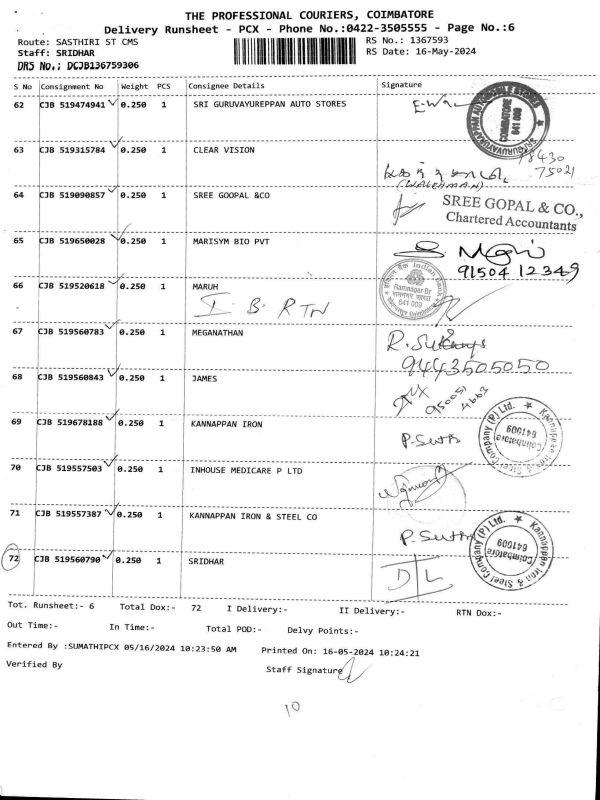 THE PROFESSIONAL COURIERS, COIMBATORE
Delivery Runsheet - PCX - Phone No.:0422-3505555 - Page No.:6
Route: SASTHIRI ST CMS RS No.: 1367593
Staff: SRIDHAR RS Date: 16-May-2024
DRS No.: DCJB136759306
S No Consignment No Weight PCS Consignee Details Signature
62 CJB 519474941 0.250 1 SRI GURUVAYUREPPAN AUTO STORES
COIMBATORE
641 009
63 CJB 519315784 0.250 1 CLEAR VISION
78430
75021
(WATCHMAN)
64 CJB 519090857 0.250 1 SREE GOOPAL &CO
SREE GOPAL & CO.,
Chartered Accountants
65 CJB 519650028 0.250 1 MARISYM BIO PVT
91504 12349
66 CJB 519520618 0.250 1 MARUH
I. B. RTN
Indian Bank
Ramnagar Br
641 009
67 CJB 519560783 0.250 1 MEGANATHAN
9443505050
68 CJB 519560843 0.250 1 JAMES
69 CJB 519678188 0.250 1 KANNAPPAN IRON
Kannappan Iron & Steel Company (P) Ltd.
Coimbatore
641009
70 CJB 519557503 0.250 1 INHOUSE MEDICARE P LTD
71 CJB 519557387 0.250 1 KANNAPPAN IRON & STEEL CO
Kannappan Iron & Steel Company (P) Ltd.
Coimbatore
641009
72 CJB 519560790 0.250 1 SRIDHAR
D L
Tot. Runsheet:- 6 Total Dox:- 72 I Delivery:- II Delivery:- RTN Dox:-
Out Time:- In Time:- Total POD:- Delvy Points:-
Entered By :SUMATHIPCX 05/16/2024 10:23:50 AM Printed On: 16-05-2024 10:24:21
Verified By Staff Signature
10